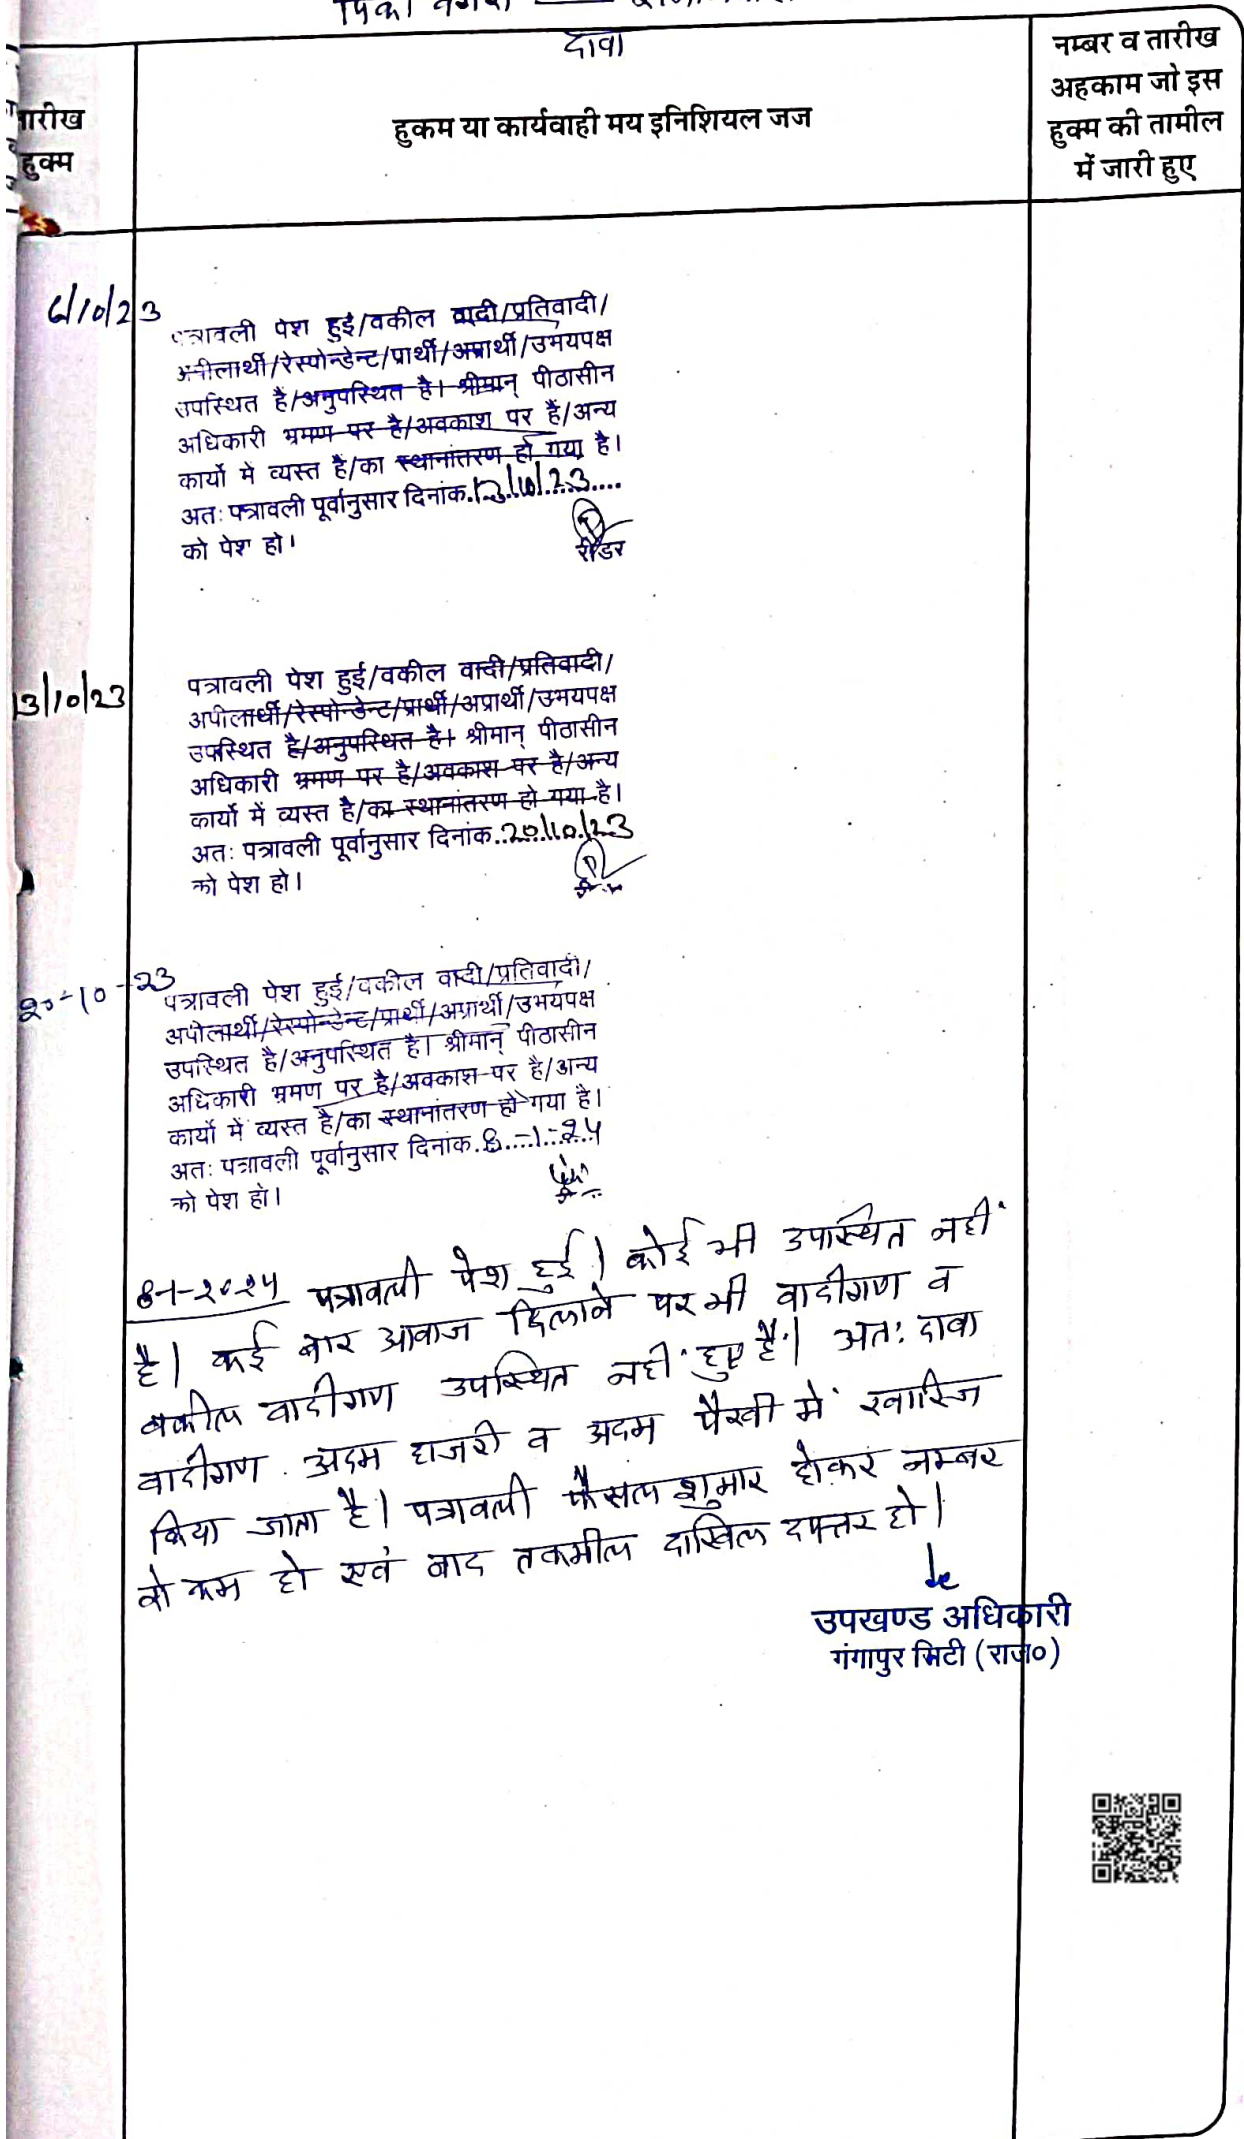 दावा
तारीख
हुक्म
हुकम या कार्यवाही मय इनिशियल जज
नम्बर व तारीख
अहकाम जो इस
हुक्म की तामील
में जारी हुए
6/10/23
पत्रावली पेश हुई/वकील वादी/प्रतिवादी/
अपीलार्थी/रेस्पोन्डेन्ट/प्रार्थी/अप्रार्थी/उभयपक्ष
उपस्थित है/अनुपस्थित है। श्रीमान् पीठासीन
अधिकारी भ्रमण पर है/अवकाश पर हैं/अन्य
कार्यो में व्यस्त है/का स्थानांतरण हो गया है।
अतः पत्रावली पूर्वानुसार दिनांक.13/10/23....
को पेश हो।
रीडर
13/10/23
पत्रावली पेश हुई/वकील वादी/प्रतिवादी/
अपीलार्थी/रेस्पोन्डेन्ट/प्रार्थी/अप्रार्थी/उभयपक्ष
उपस्थित है/अनुपस्थित है। श्रीमान् पीठासीन
अधिकारी भ्रमण पर है/अवकाश पर है/अन्य
कार्यो में व्यस्त है/का स्थानांतरण हो गया है।
अतः पत्रावली पूर्वानुसार दिनांक..20/10/23
को पेश हो।
20-10-23
पत्रावली पेश हुई/वकील वादी/प्रतिवादी/
अपीलार्थी/रेस्पोन्डेन्ट/प्रार्थी/अप्रार्थी/उभयपक्ष
उपस्थित है/अनुपस्थित है। श्रीमान् पीठासीन
अधिकारी भ्रमण पर है/अवकाश पर है/अन्य
कार्यो में व्यस्त है/का स्थानांतरण हो गया है।
अतः पत्रावली पूर्वानुसार दिनांक.8-1-24
को पेश हो।
8-1-2024 पत्रावली पेश हुई। कोई भी उपस्थित नहीं
है। कई बार आवाज दिलाने पर भी वादीगण व
वकील वादीगण उपस्थित नहीं हुए हैं। अतः दावा
वादीगण अदम हाजरी व अदम पैरवी में खारिज
किया जाता है। पत्रावली फैसल शुमार होकर नम्बर
से कम हो एवं बाद तकमील दाखिल दफ्तर हो।
उपखण्ड अधिकारी
गंगापुर सिटी (राज०)